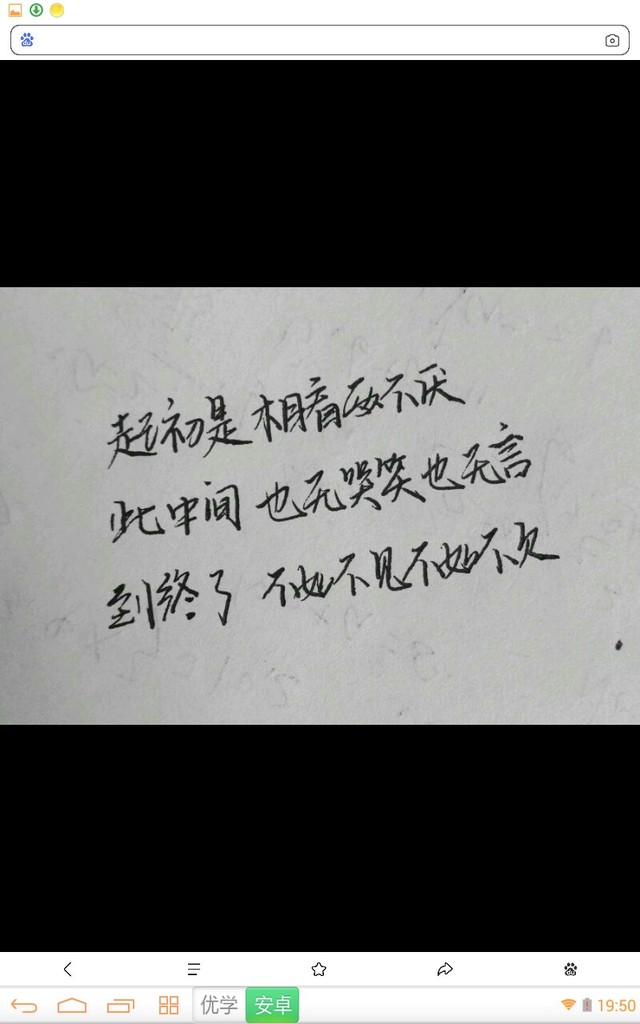 起初是相看两不厌
此中间 也无哭笑也无言
到终了 不如不见不如不欠
优学 安卓 19:50